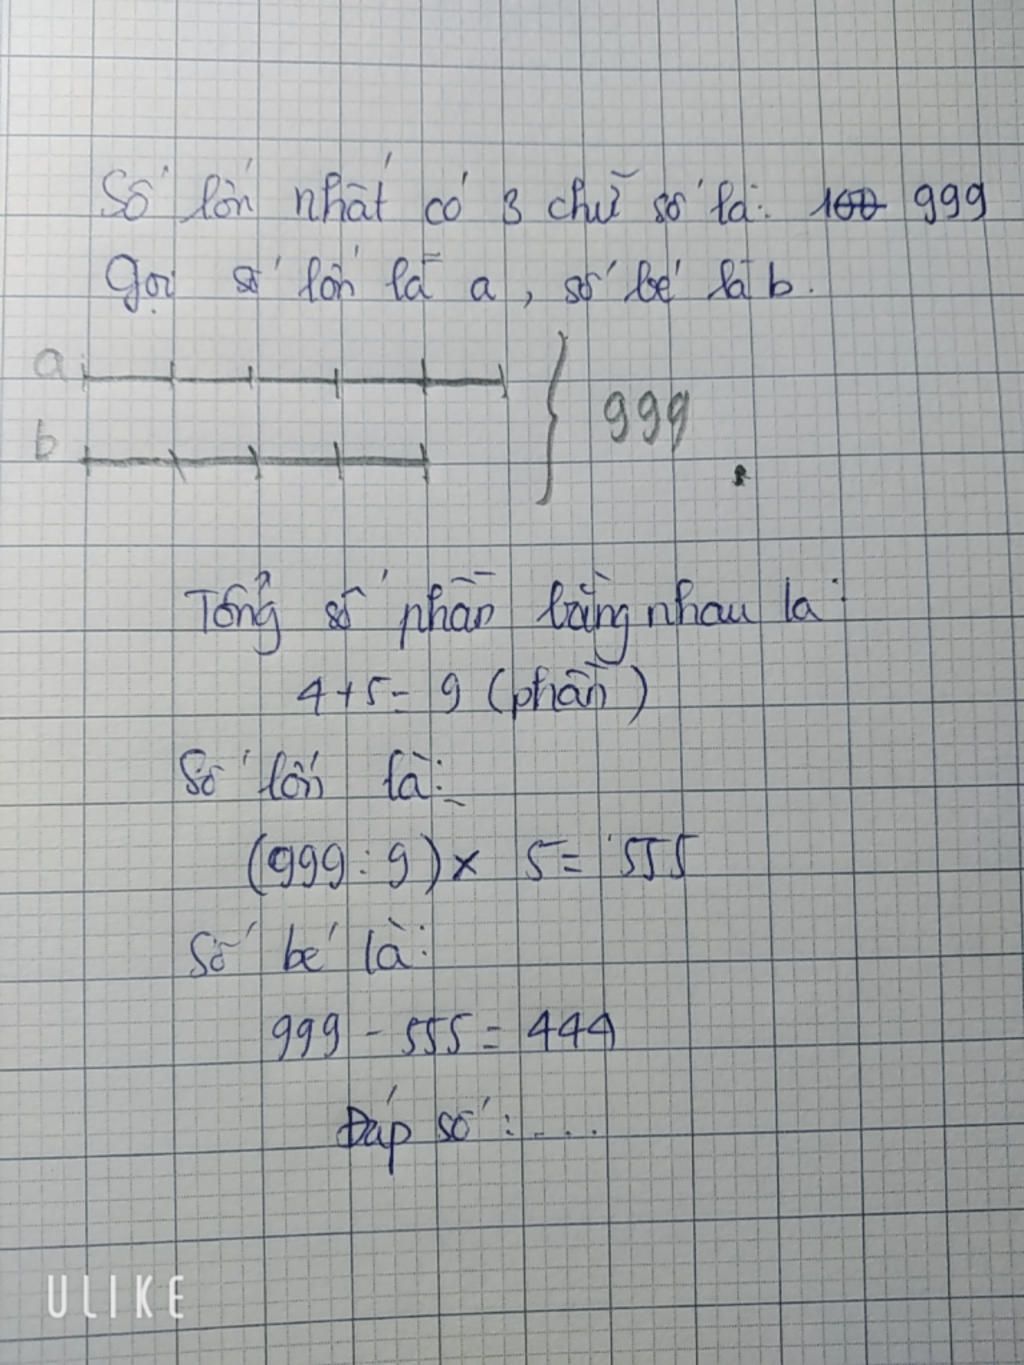 Số lớn nhất có 3 chữ số là: 100 999
Gọi số lớn là a, số bé là b.
a
b
999
Tổng số phần bằng nhau là:
4+5= 9 (phần)
Số lớn là:
(999 : 9) x 5 = 555
Số bé là:
999 - 555 = 444
Đáp số: ....
ULIKE